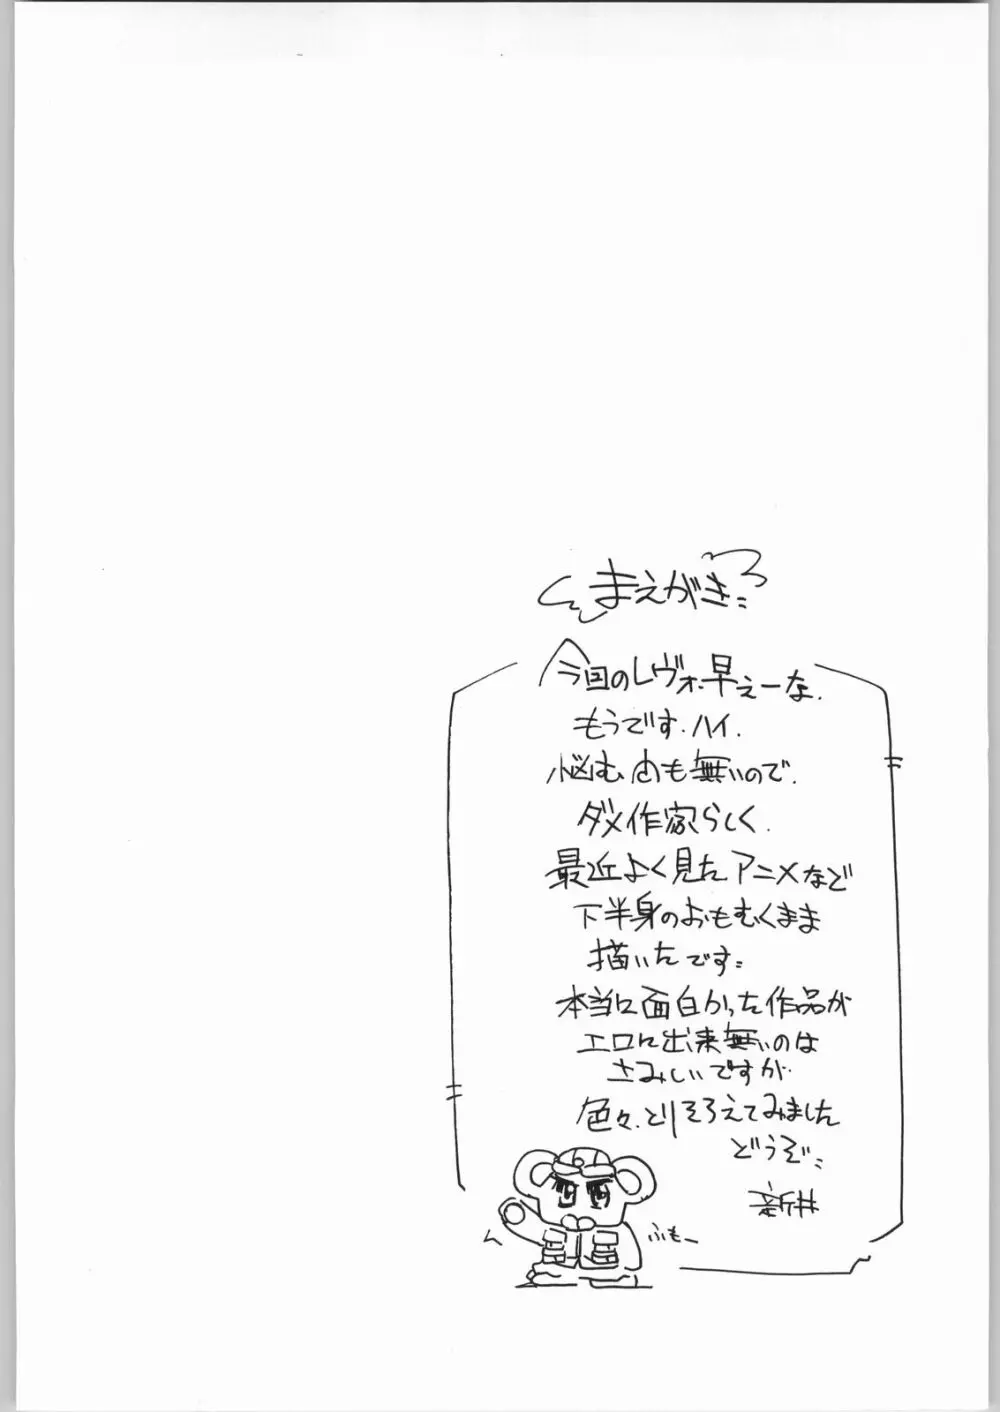 まえがき
今回のレヴォ早えーな.
もうです.ハイ.
悩む 間も無いので.
ダメ作家らしく.
最近よく見たアニメなど
下半身のおもむくまま
描いたです
本当に面白かった作品が
エロに出来無いのは
さみしいですが
色々.とりそろえてみました
どうぞ
新井
ふもー